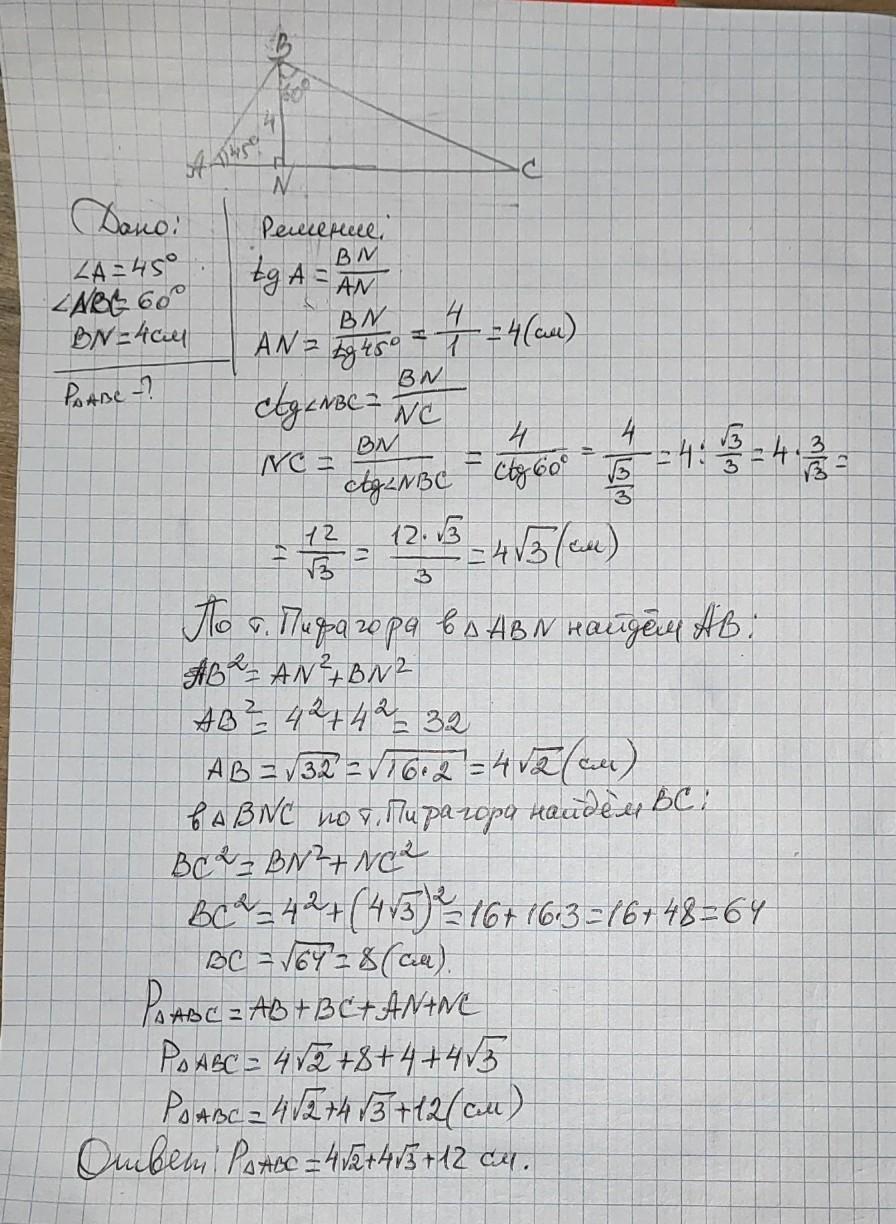 B
60°
4
A 45°
N
C
Дано:
∠A = 45°
∠NBC = 60°
BN = 4 см
P△ABC - ?
Решение:
tg A = BN/AN
AN = BN/tg45° = 4/1 = 4(см)
ctg∠NBC = BN/NC
NC = BN/ctg∠NBC = 4/ctg60° = 4/(√3/3) = 4 : √3/3 = 4 · 3/√3 =
= 12/√3 = 12·√3/3 = 4√3 (см)
По т. Пифагора в △ABN найдём AB:
AB² = AN² + BN²
AB² = 4² + 4² = 32
AB = √32 = √16·2 = 4√2 (см)
в △BNC по т. Пирагора найдём BC:
BC² = BN² + NC²
BC² = 4² + (4√3)² = 16 + 16·3 = 16 + 48 = 64
BC = √64 = 8 (см).
P△ABC = AB + BC + AN + NC
P△ABC = 4√2 + 8 + 4 + 4√3
P△ABC = 4√2 + 4√3 + 12 (см)
Ответ: P△ABC = 4√2 + 4√3 + 12 см.